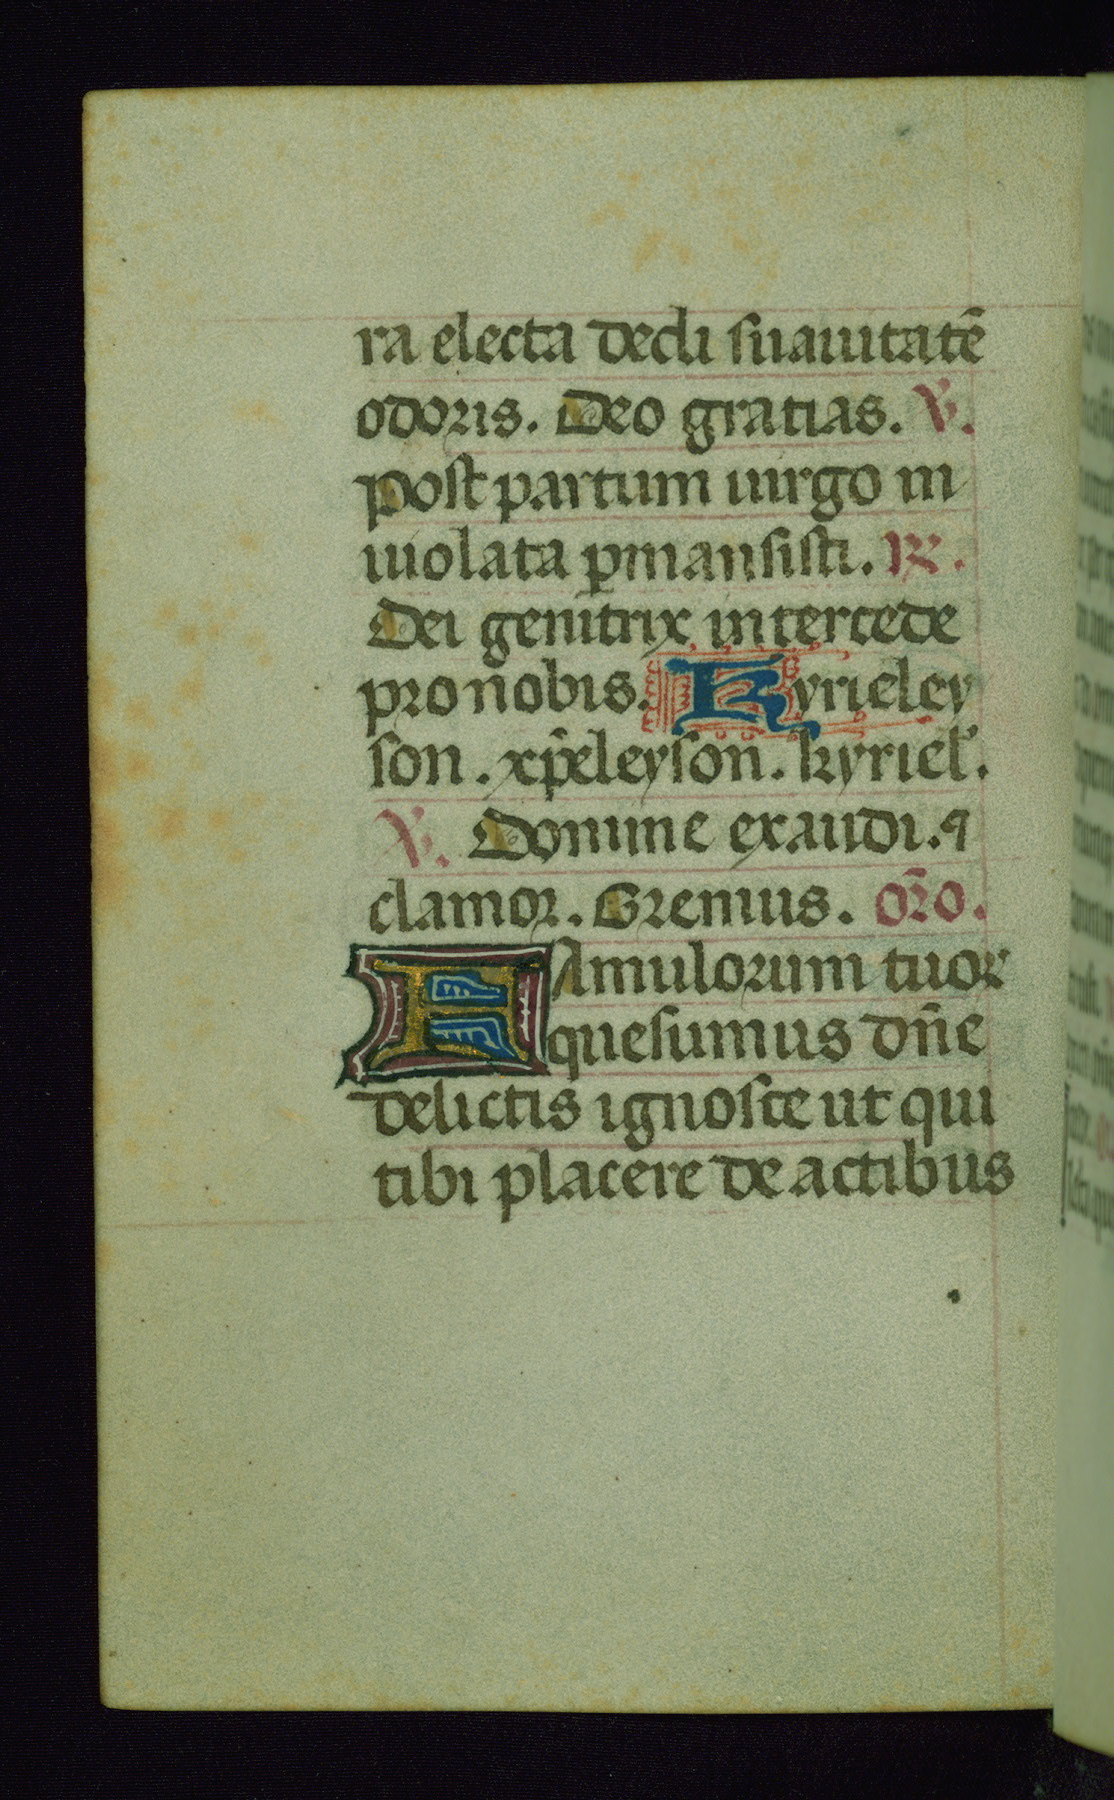 ra electa dedi suauitatē
odoris. Deo gratias. ℣.
Post partum uirgo in
uiolata ꝑmansisti. ℟.
Dei genitrix intercede
pro nobis. Kyrieley
son. xp̄eleyson. kyriel'.
℣. Domine exaudi. ⁊
clamor. Oremus. or̄o.
FAmulorum tuor
quesumus dn̄e
delictis ignosce ut qui
tibi placere de actibus